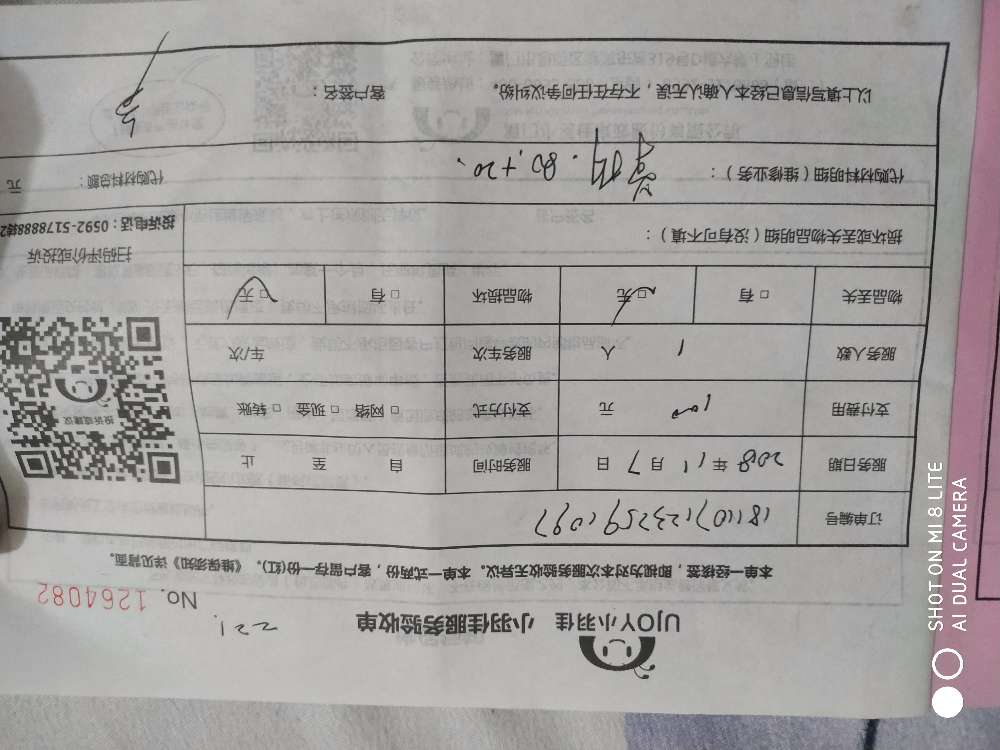 UJOY小羽佳 小羽佳服务验收单
221
No. 1264082
本单一经接签，即视为对本次服务验收无异议。本单一式两份，客户留存一份(红)，《维保须知》详见背面。
订单编号
服务日期 2018年11月7日 服务时间 自 至 止
支付费用 100 元 支付方式 □网络 □现金 □转账
服务人数 1 人 服务车次 车/次
物品丢失 □有 □无 物品损坏 □有 □无
损坏或丢失物品明细（没有可不填）：
代购材料明细（维修业务）： 80.+20.
代购材料总额： 元
以上填写信息已经本人确认无误，不存在任何任何争议纠纷。 客户签名：
投诉或建议
扫码评价或投诉
投诉电话：0592-5178888转2
SHOT ON MI 8 LITE
AI DUAL CAMERA